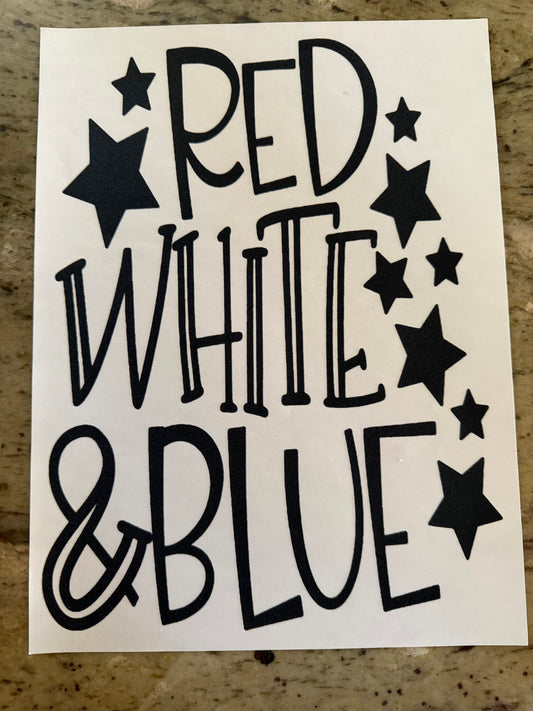 RED
WHITE
& BLUE